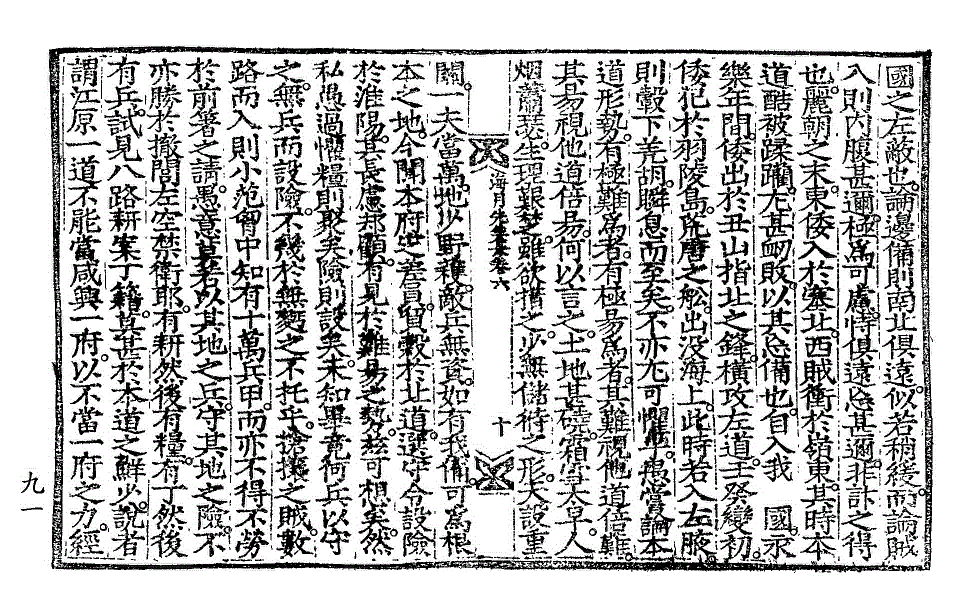 國之左蔽也論邊備則南北俱遠似若稍緩而論賊
入則內腹甚邇極爲可慮恃俱遠忽甚邇非計之得
也麗朝之末東倭入於塞北西賊衝於嶺東其時本
道酷被蹂躪尤甚衂敗以其忽備也自入我 國永
樂年間倭出於丑山指北之鋒橫攻左道壬癸變初
倭犯於羽陵島荒唐之船出没海上此時若入左腋
則轂下羌胡瞬息而至矣不亦尤可懼乎愚嘗論本
道形勢有極難爲者有極易爲者其難視他道倍難
其易視他道倍易何以言之土地甚磽霜雪太早人
烟蕭瑟生理艱楚雖欲措之少無儲偫之形天設重
海月先生文集卷六 十
關一夫當萬地以野雖敵兵無資如有我備可爲根
本之地今聞本府定差員留穀於北道選守令設險
於淮陽其長慮却顧有見於難易之勢玆可想矣然
私愚過懼糧則聚矣險則設矣未知畢竟何兵以守
之無兵而設險不幾於無麪之不托乎搶攘之賊數
路而入則小范胷中知有十萬兵甲而亦不得不勞
於前箸之請愚意莫若以其地之兵守其地之險不
亦勝於撤閭左空禁衛耶有耕然後有糧有丁然後
有兵試見八路耕案丁籍莫甚於本道之鮮少說者
謂江原一道不能當咸興一府以不當一府之力經
九一